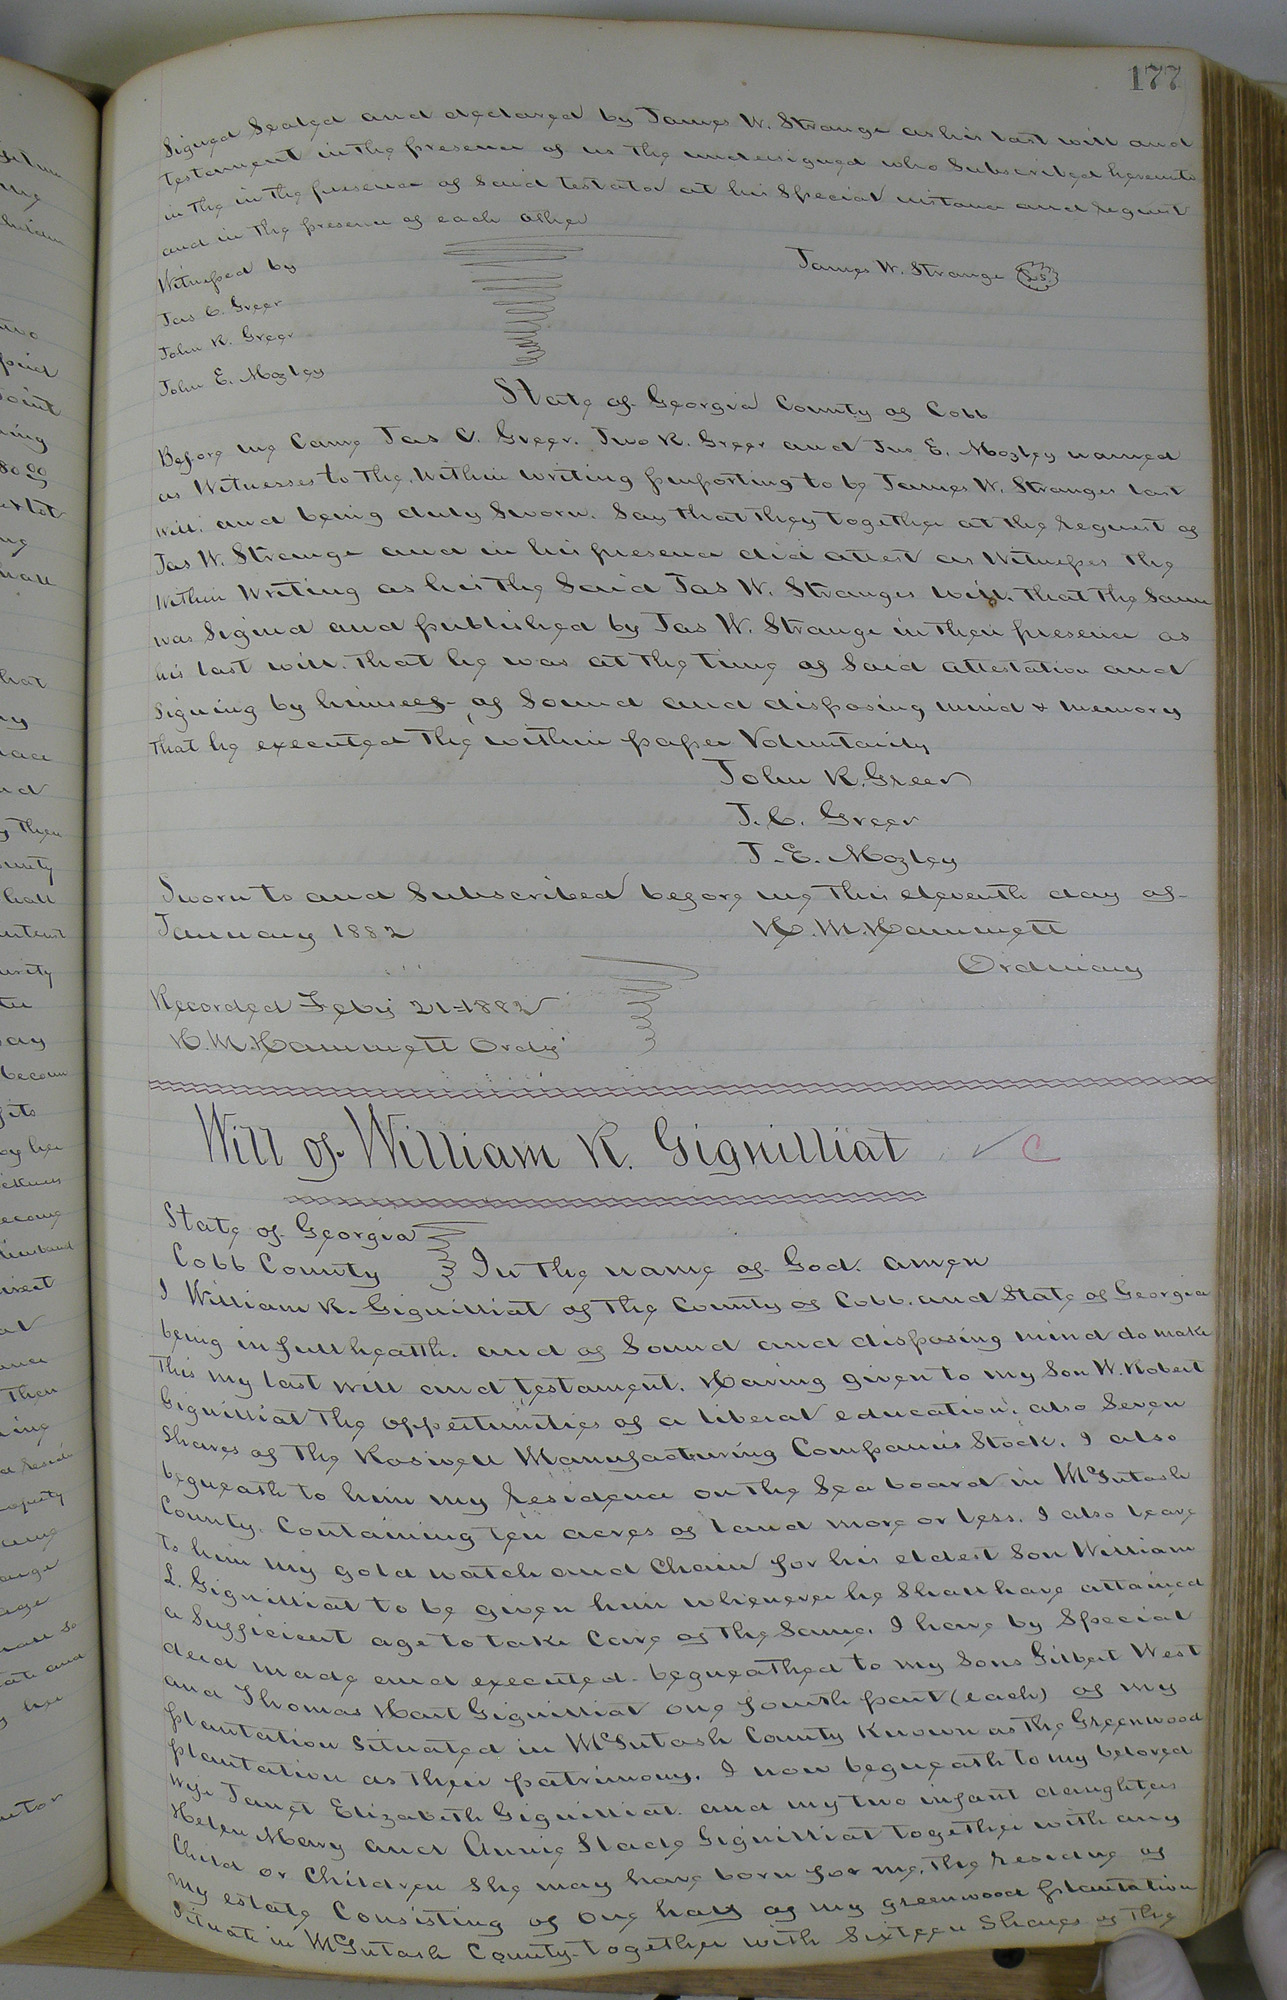 177
Signed Sealed and declared by James W. Strange as his last will and
testament in the presence of us the undersigned who Subscribed hereunto
in the in the presence of Said testator at his Special instance and request
and in the presence of each other
James W. Strange L.S.
Witnessed by
Jas C. Greer
John R. Greer
John E. Mozley
State of Georgia County of Cobb
Before me Came Jas C. Greer. Jno R. Greer and Jno E. Mozley named
as Witnesses to the Within writing purporting to be James W. Stranges last
will. and being duly Sworn. Say that they together at the request of
Jas W. Strange and in his presence did attest as Witnesses the
Within Writing as his the Said Jas W. Stranges will. that the Same
was Signd and published by Jas W. Strange in their presence as
his last will. that he was at the time of Said attestation and
Signing by himself of Sound and disposing mind & memory
that he executed the within paper Voluntarily
John R. Greer
J. C. Greer
J. E. Mozley
Sworn to and Subscribed before me this eleventh day of
January 1882 H. M. Hammett
Ordinary
Recorded Feby 21-1882
H. M. Hammett Ordy
Will of William R. Gignilliat C
State of Georgia
Cobb County In the name of God. amen
I William R. Gignilliat of the County of Cobb. and State of Georgia
being in full health. and of Sound and disposing mind do make
this my last will and testament. Having given to my Son W. Robert
Gignilliat the oppertunities of a liberal education. also Seven
Shares of the Roswell Manufacturing Companis Stock. I also
bequeath to him my residence on the Sea board in McIntosh
County. Containing ten acres of land more or less. I also leave
to him my gold watch and Chain for his eldest Son William
L. Gignilliat to be given him whenever he Shall have attained
a Sufficient age to take Care of the Same. I have by Special
deed made and executed bequeathed to my Sons Gilbert West
and Thomas Hart Gignilliat one fourth part (each) of my
plantation Situated in McIntosh County Known as the Greenwood
plantation as their patrimony. I now bequeath to my beloved
Wife Janet Elizabeth Gignilliat and my two infant daughters
Helen Mary and Annie Slade Gignilliat together with any
Child or Children She may have born for me. the residue of
my estate Consisting of one half of my greenwood plantation
Situate in McIntosh County together with Sixteen Shares of the